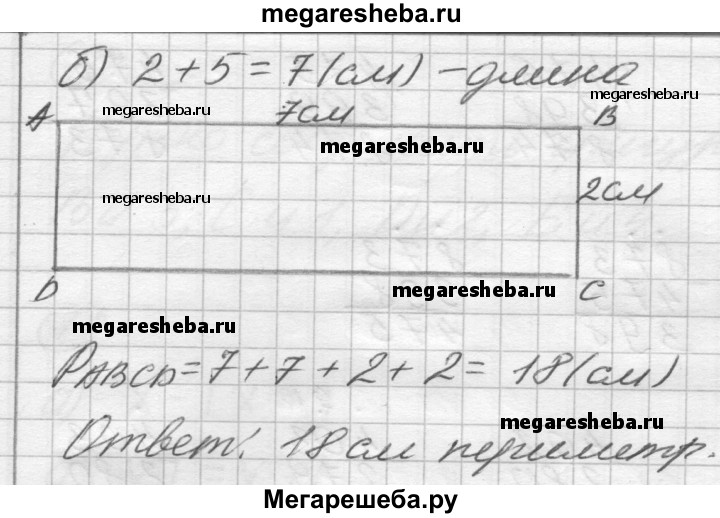 megaresheba.ru
б) 2 + 5 = 7 (см) - длина
megaresheba.ru
megaresheba.ru
A 7см B
megaresheba.ru
megaresheba.ru
2см
D megaresheba.ru C
megaresheba.ru
PABCD = 7 + 7 + 2 + 2 = 18 (см)
megaresheba.ru
Ответ: 18 см периметр.
Мегарешеба.ру